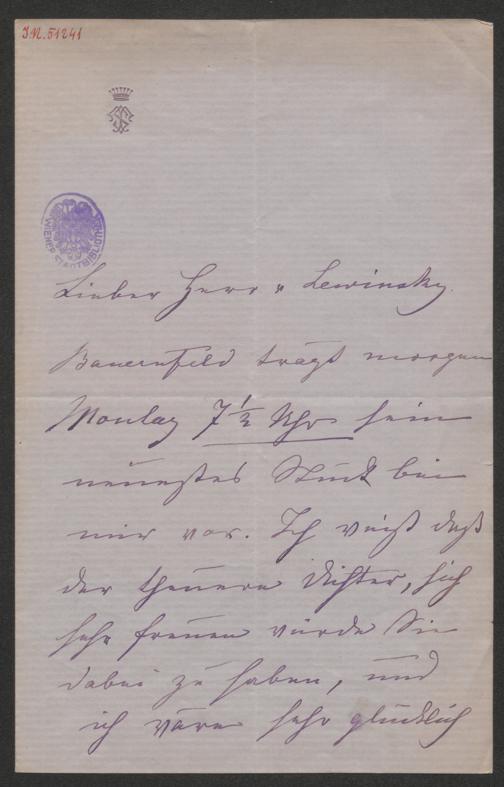 I.N. 51241
WIENER STADTBIBLIOTHEK
Lieber Herr v Lewinsky.
Bauernfeld trägt morgen
Montag 7 1/2 Uhr sein
neuestes Stück bei
mir vor. Ich weiß daß
der theuere Dichter, sich
sehr freuen würde Sie
dabei zu haben, und
ich wäre sehr glücklich